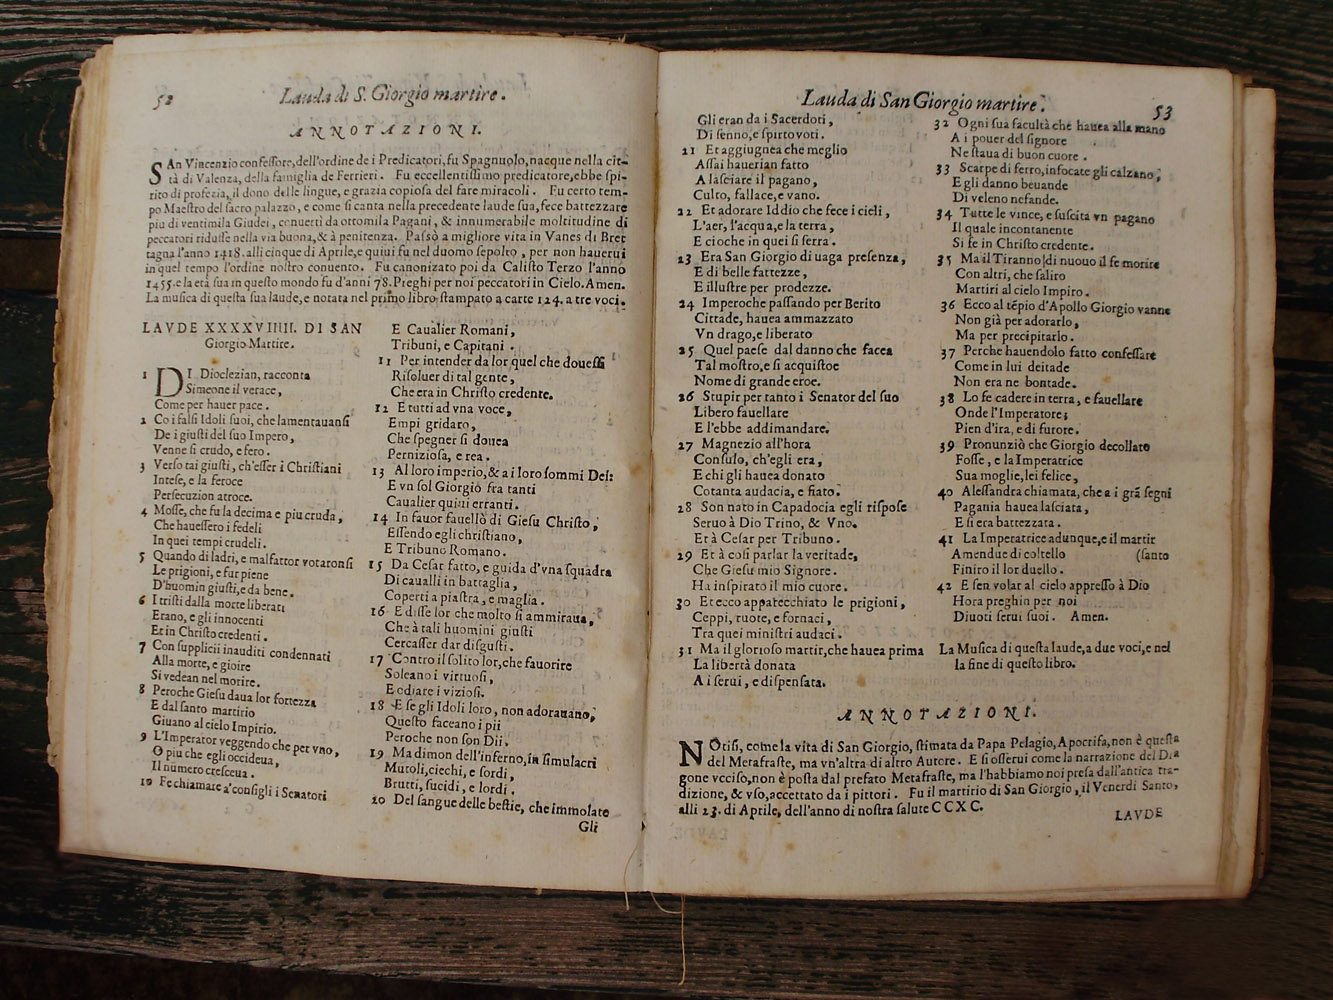 52
Lauda di S. Giorgio martire.
ANNOTAZIONI.
SAn Vincenzio confessore, dell'ordine de i Predicatori, fu Spagnuolo, nacque nella cit-
tà di Valenza, della famiglia de Ferrieri. Fu eccellentissimo predicatore, ebbe spi-
rito di profezia, il dono delle lingue, e grazia copiosa del fare miracoli. Fu certo tem-
po Maestro del sacro palazzo, e come si canta nella precedente laude sua, fece battezzare
piu di ventimila Giudei, conuerti da ottomila Pagani, & innumerabile moltitudine di
peccatori ridusse nella via buona, & à penitenza. Passò a migliore vita in Vanes di Bret
tagna l'anno 1418. alli cinque di Aprile, e quiui fu nel duomo sepolto, per non hauerui
in quel tempo l'ordine nostro conuento. Fu canonizato poi da Calisto Terzo l'anno
1455. e la età sua in questo mondo fu d'anni 78. Preghi per noi peccatori in Cielo. Amen.
La musica di questa sua laude, e notata nel primo libro stampato a carte 124. a tre voci.
LAVDE XXXXVIIII. DI SAN
Giorgio Martire.
1 DI Dioclezian, racconta
Simeone il verace,
Come per hauer pace.
2 Co i falsi Idoli suoi, che lamentauansi
De i giusti del suo Impero,
Venne si crudo, e fero.
3 Verso tai giusti, ch'esser i Christiani
Intese, e la feroce
Persecuzion atroce.
4 Mosse, che fu la decima e piu cruda,
Che hauessero i fedeli
In quei tempi crudeli.
5 Quando di ladri, e malfattor votaronsi
Le prigioni, e fur piene
D'huomin giusti, e da bene.
6 I tristi dalla morte liberati
Erano, e gli innocenti
Et in Christo credenti.
7 Con supplicii inauditi condennati
Alla morte, e gioire
Si vedean nel morire.
8 Peroche Giesu daua lor fortezza
E dal santo martirio
Giuano al cielo Impirio.
9 L'Imperator veggendo che per vno,
O piu che egli occideua,
Il numero cresceua.
10 Fe chiamare a' consigli i Senatori
E Caualier Romani,
Tribuni, e Capitani.
11 Per intender da lor quel che douessi
Risoluer di tal gente,
Che era in Christo credente.
12 E tutti ad vna voce,
Empi gridaro,
Che spegner si douea
Perniziosa, e rea.
13 Al loro imperio, & a i loro sommi Dei:
E vn sol Giorgio fra tanti
Caualier quiui erranti.
14 In fauor fauellò di Giesu Christo,
Essendo egli christiano,
E Tribuno Romano.
15 Da Cesar fatto, e guida d'vna squadra
Di caualli in battaglia,
Coperti a piastra, e maglia.
16 E disse lor che molto si ammiraua,
Che à tali huomini giusti
Cercasser dar disgusti.
17 Contro il solito lor, che fauorire
Soleano i virtuosi,
E odiare i viziosi.
18 E se gli Idoli loro, non adorauano,
Questo faceano i pii
Peroche non son Dii.
19 Ma dimon dell'inferno, in simulacri
Mutoli, ciechi, e sordi,
Brutti, sucidi, e lordi.
20 Del sangue delle bestie, che immolate
Gli
Lauda di San Giorgio martire.
53
Gli eran da i Sacerdoti,
Di senno, e spirto voti.
21 Et aggiugnea che meglio
Assai hauerian fatto
A lasciare il pagano,
Culto, fallace, e vano.
22 Et adorare Iddio che fece i cieli,
L'aer, l'acqua, e la terra,
E ciò che in quei si serra.
23 Era San Giorgio di uaga presenza,
E di belle fattezze,
E illustre per prodezze.
24 Imperoche passando per Berito
Cittade, hauea ammazzato
Vn drago, e liberato
25 Quel paese dal danno che facea
Tal mostro, e si acquistoe
Nome di grande eroe.
26 Stupir per tanto i Senator del suo
Libero fauellare
E l'ebbe addimandare.
27 Magnezio all'hora
Consulo, ch'egli era,
E chi gli hauea donato
Cotanta audacia, e fiato.
28 Son nato in Capadocia egli rispose
Seruo à Dio Trino, & Vno.
Et à Cesar per Tribuno.
29 Et à così parlar la veritade,
Che Giesu mio Signore.
Ha inspirato il mio cuore.
30 Et ecco apparecchiato le prigioni,
Ceppi, ruote, e fornaci,
Tra quei ministri audaci.
31 Ma il glorioso martir, che hauea prima
La libertà donata
A i serui, e dispensata.
32 Ogni sua facultà che hauea alla mano
A i pouer del signore
Ne staua di buon cuore.
33 Scarpe di ferro, infocate gli calzano,
E gli danno beuande
Di veleno nefande.
34 Tutte le vince, e suscita vn pagano
Il quale incontanente
Si fe in Christo credente.
35 Ma il Tiranno di nuouo il fe morire
Con altri, che saliro
Martiri al cielo Impiro.
36 Ecco al tẽpio d'Apollo Giorgio vanne
Non già per adorarlo,
Ma per precipitarlo.
37 Perche hauendolo fatto confessare
Come in lui deitade
Non era ne bontade.
38 Lo fe cadere in terra, e fauellare
Onde l'Imperatore;
Pien d'ira, e di furore.
39 Pronunziò che Giorgio decollato
Fosse, e la Imperatrice
Sua moglie, lei felice,
40 Alessandra chiamata, che a i grã segni
Pagania hauea lasciata,
E si era battezzata.
41 La Imperatrice adunque, e il martir
Amendue di coltello (santo
Finiro il lor duello.
42 E sen volar al cielo appresso à Dio
Hora preghin per noi
Diuoti serui suoi. Amen.
La Musica di questa laude, a due voci, e nel
la fine di questo libro.
ANNOTAZIONI.
NOtisi, come la vita di San Giorgio, stimata da Papa Pelagio, Apocrifa, non è questa
del Metafraste, ma vn'altra di altro Autore. E si osserui come la narrazione del Dra
gone vcciso, non è posta dal prefato Metafraste, ma l'habbiamo noi presa dall'antica tra-
dizione, & vso, accettato da i pittori. Fu il martirio di San Giorgio, il Venerdi Santo,
alli 23. di Aprile, dell'anno di nostra salute CCXC.
LAVDE